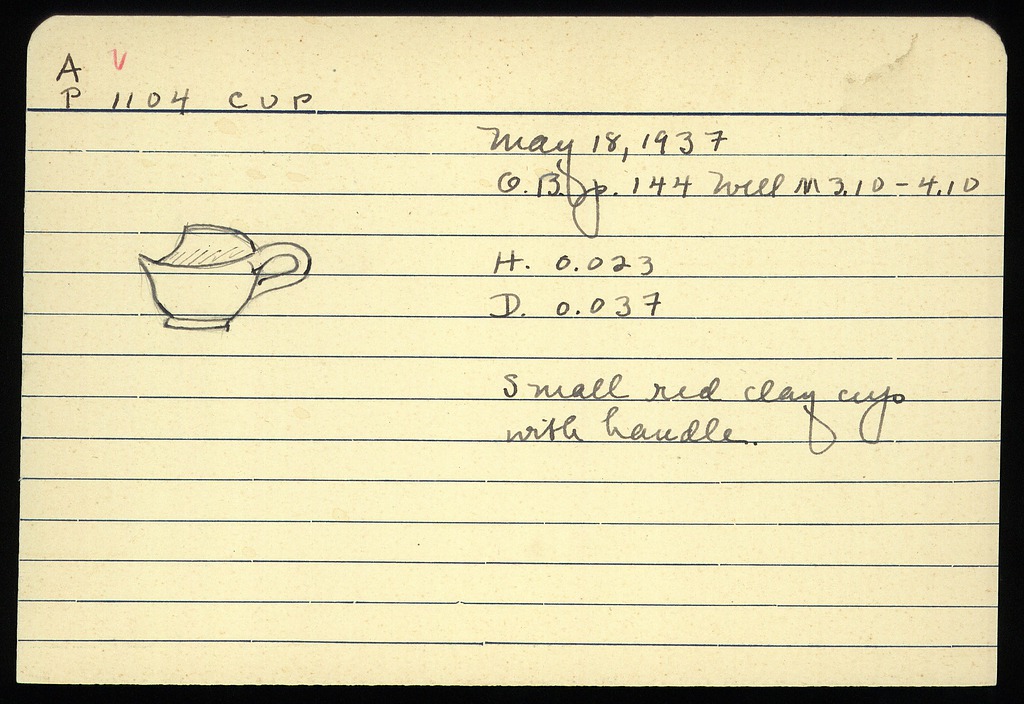 A V
P 1104 CUP
May 18, 1937
O.B. p. 144 Well M 3.10 - 4.10
H. 0.023
D. 0.037
Small red clay cup
with handle.